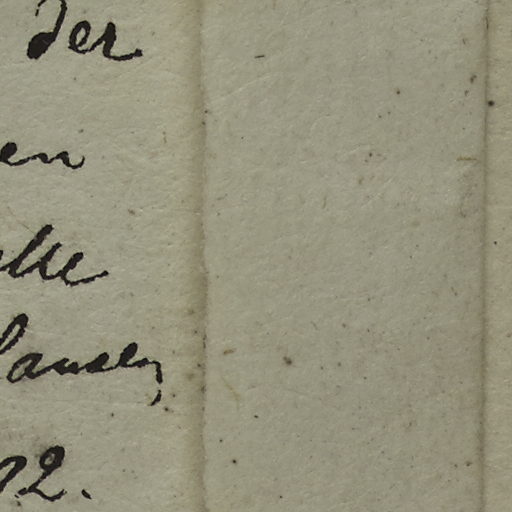 der
en
elle
lausen
12.